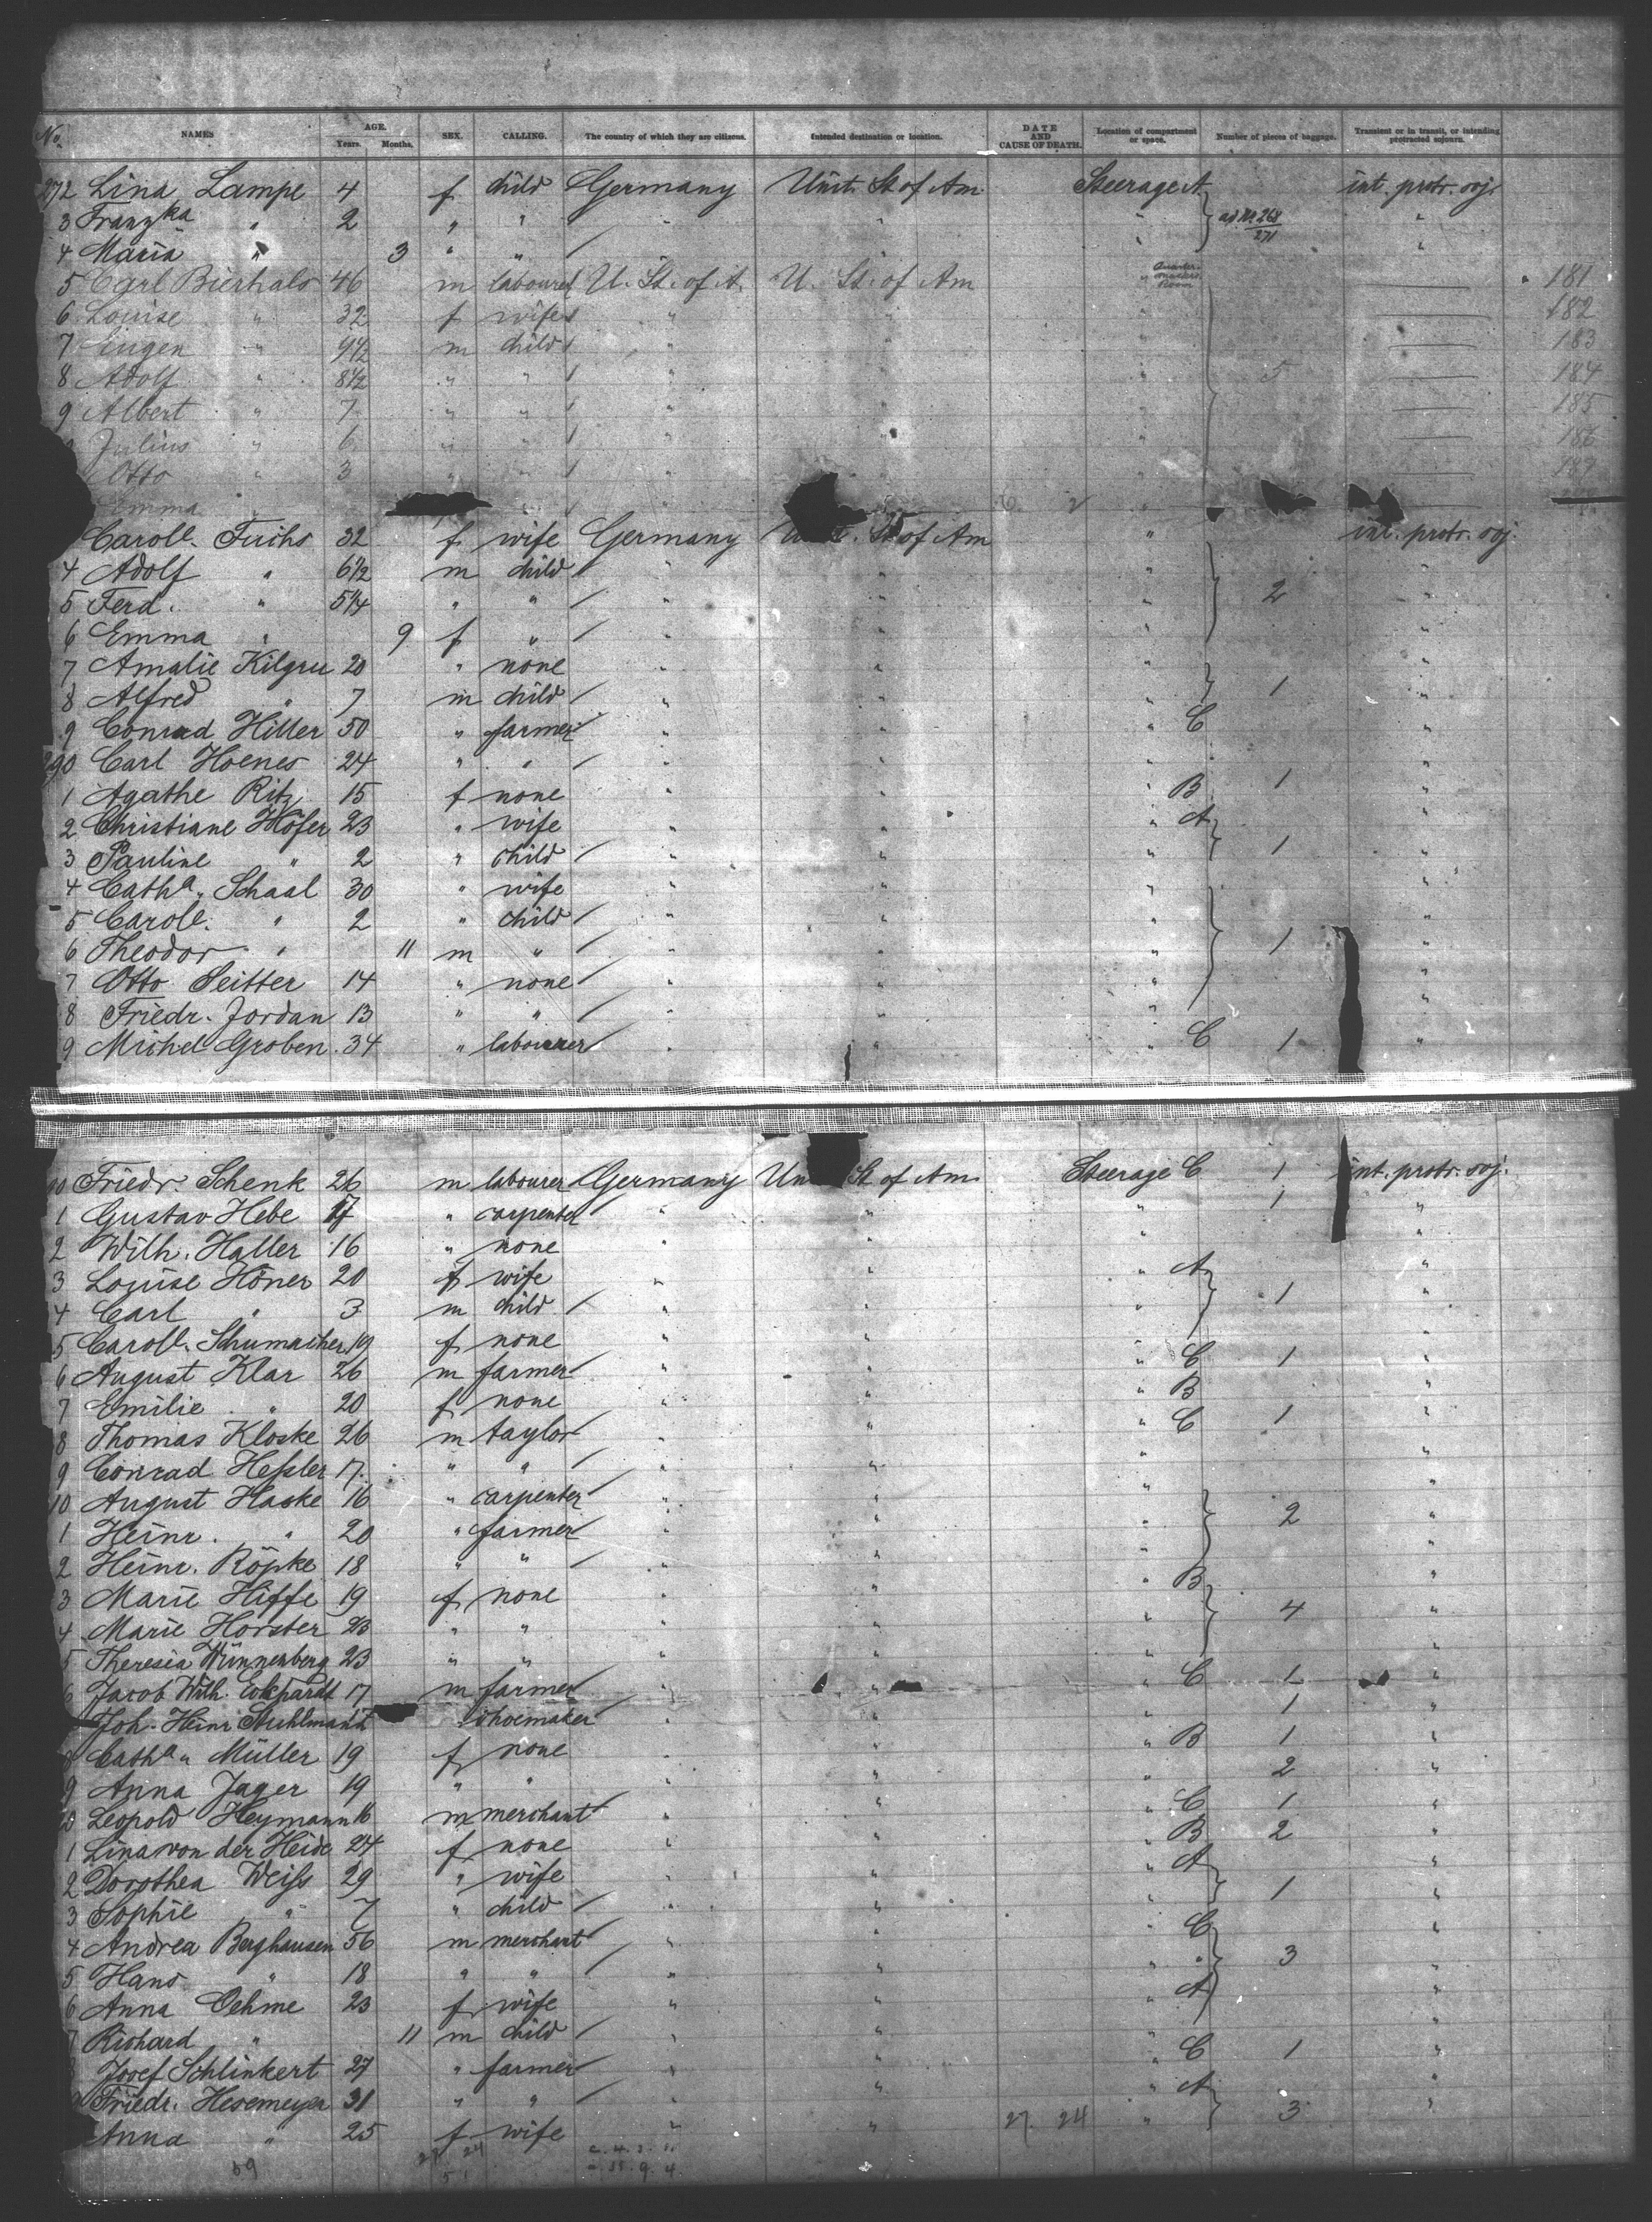 No. NAMES AGE. Years. Months. SEX. CALLING. The country of which they are citizens. Intended destination or location. DATE AND CAUSE OF DEATH. Location of compartment or space. Number of pieces of baggage. Transient or in transit, or intending protracted sojourn.
272 Lina Lampe 4 f child Germany Unit. St of Am. Steerage A int. protr. soj.
3 Franzka " 2 " " " " " ad No. 268/271 "
4 Maria " 3 " " / " " " "
5 Carl Bierhals 46 m labourer U. St. of A. U. St. of Am " Quarter-masters Room 181
6 Louise " 32 f wife " " " 182
7 Eugen " 9 1/2 m child " " " 183
8 Adolf " 8 1/2 " " / " " " 5 184
9 Albert " 7 " " / " " " 185
Julius " 6 " " / " " " 186
Otto " 3 " " / " " " 187
Emma "
Carole. Fuchs 32 f wife Germany St of Am " int. protr. soj.
4 Adolf " 6 1/2 m child / " " " "
5 Ferd. " 5 1/4 " " / " " " 2 "
6 Emma " 9 f " / " " " "
7 Amalie Kilgru 20 " none " " " "
8 Alfred " 7 m child / " " " 1 "
9 Conrad Hiller 50 " farmer / " " " C "
290 Carl Hoenes 24 " " / " " " "
1 Agathe Ritz 15 f none " " " B 1 "
2 Christiane Höfer 23 " wife " " " A "
3 Pauline " 2 " child / " " " 1 "
4 Catha. Schaal 30 " wife " " " "
5 Carole. " 2 " child / " " " "
6 Theodor " 11 m " / " " " 1 "
7 Otto Seitter 14 " none / " " " "
8 Friedr. Jordan 13 " " / " " " "
9 Michel Groben 34 " labourer / " " " C 1 "
00 Friedr. Schenk 26 m labourer Germany Un St of Am. Steerage C 1 int. protr. soj.
1 Gustav Hebe 17 " carpenter / " " " 1 "
2 Wilh. Haller 16 " none " " " "
3 Louise Höner 20 f wife " " " A "
4 Carl " 3 m child / " " " 1 "
5 Carole. Schumacher 19 f none " " " "
6 August Klar 26 m farmer / " " " C 1 "
7 Emilie " 20 f none " " " B "
8 Thomas Kloske 26 m taylor / " " " C 1 "
9 Conrad Heßler 17 " " / " " " "
10 August Haske 16 " carpenter / " " " "
1 Heinr. " 20 " farmer / " " " 2 "
2 Heinr. Röpke 18 " " / " " " "
3 Marie Hiffe 19 f none " " " B "
4 Marie Horster 23 " " " " " 4 "
5 Theresia Wünnenberg 23 " " " " " "
6 Jacob Wilh. Eckhardt 17 m farmer / " " " C 1 "
Joh. Heinr Stuhlmann " shoemaker / " " " 1 "
8 Catha. Müller 19 f none " " " B 1 "
9 Anna Jager 19 " " " " " 2 "
20 Leopold Heymann 16 m merchant / " " " C 1 "
1 Lina von der Heide 24 f none " " " B 2 "
2 Dorothea Weiß 29 " wife " " " A "
3 Sophie " 7 " child / " " " 1 "
4 Andrea Berghausen 56 m merchant / " " " C "
5 Hans " 18 " " / " " " " 3 "
6 Anna Oehme 23 f wife " " " A "
7 Richard " 11 m child / " " " "
Josef Schlinkert 27 " farmer / " " " C 1 "
Friedr. Hesemeyer 31 " " / " " " A "
Anna " 25 f wife " " 27. 24 " 3 "
59 27 24
51